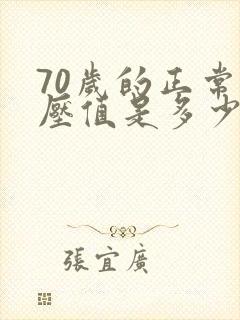 70歲的正常
壓值是多少
張宜廣